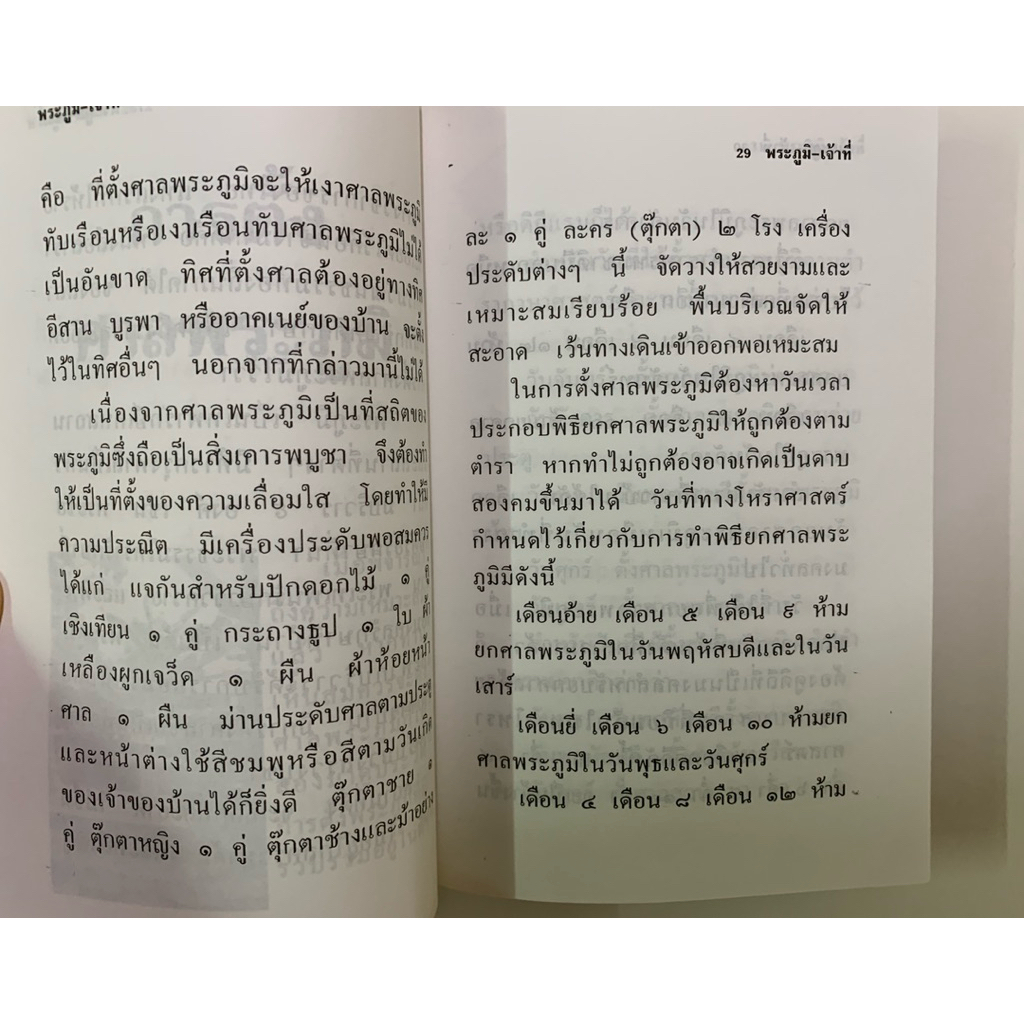 พระภูมิ-เจ้าที่
คือ ที่ตั้งศาลพระภูมิจะให้เงาศาลพระภูมิ
ทับเรือนหรือเงาเรือนทับศาลพระภูมิไม่ได้
เป็นอันขาด ทิศที่ตั้งศาลต้องอยู่ทางทิศ
อีสาน บูรพา หรืออาคเนย์ของบ้าน จะตั้ง
ไว้ในทิศอื่นๆ นอกจากที่กล่าวมานี้ไม่ได้
เนื่องจากศาลพระภูมิเป็นที่สถิตของ
พระภูมิซึ่งถือเป็นสิ่งเคารพบูชา จึงต้องทำ
ให้เป็นที่ตั้งของความเลื่อมใส โดยทำให้มี
ความประณีต มีเครื่องประดับพอสมควร
ได้แก่ แจกันสำหรับปักดอกไม้ ๑ คู่
เชิงเทียน ๑ คู่ กระถางธูป ๑ ใบ ผ้า
เหลืองผูกเจว็ด ๑ ผืน ผ้าห้อยหน้า
ศาล ๑ ผืน ม่านประดับศาลตามประตู
และหน้าต่างใช้สีชมพูหรือสีตามวันเกิด
ของเจ้าของบ้านได้ก็ยิ่งดี ตุ๊กตาชาย ๑
คู่ ตุ๊กตาหญิง ๑ คู่ ตุ๊กตาช้างและม้าอย่าง
29 พระภูมิ-เจ้าที่
ละ ๑ คู่ ละคร (ตุ๊กตา) ๒ โรง เครื่อง
ประดับต่างๆ นี้ จัดวางให้สวยงามและ
เหมาะสมเรียบร้อย พื้นบริเวณจัดให้
สะอาด เว้นทางเดินเข้าออกพอเหมะสม
ในการตั้งศาลพระภูมิต้องหาวันเวลา
ประกอบพิธียกศาลพระภูมิให้ถูกต้องตาม
ตำรา หากทำไม่ถูกต้องอาจเกิดเป็นดาบ
สองคมขึ้นมาได้ วันที่ทางโหราศาสตร์
กำหนดไว้เกี่ยวกับการทำพิธียกศาลพระ
ภูมิมีดังนี้
เดือนอ้าย เดือน ๕ เดือน ๙ ห้าม
ยกศาลพระภูมิในวันพฤหัสบดีและในวัน
เสาร์
เดือนยี่ เดือน ๖ เดือน ๑๐ ห้ามยก
ศาลพระภูมิในวันพุธและวันศุกร์
เดือน ๔ เดือน ๘ เดือน ๑๒ ห้าม